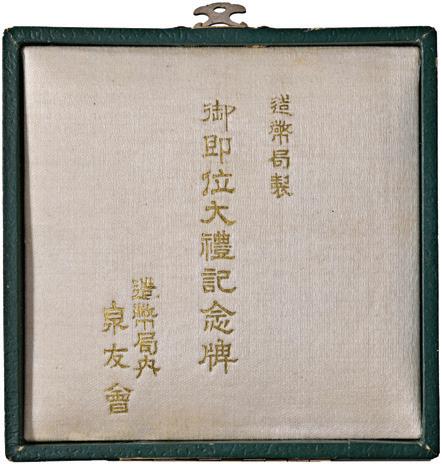 造幣局製
御即位大禮記念牌
造幣局内
泉友會